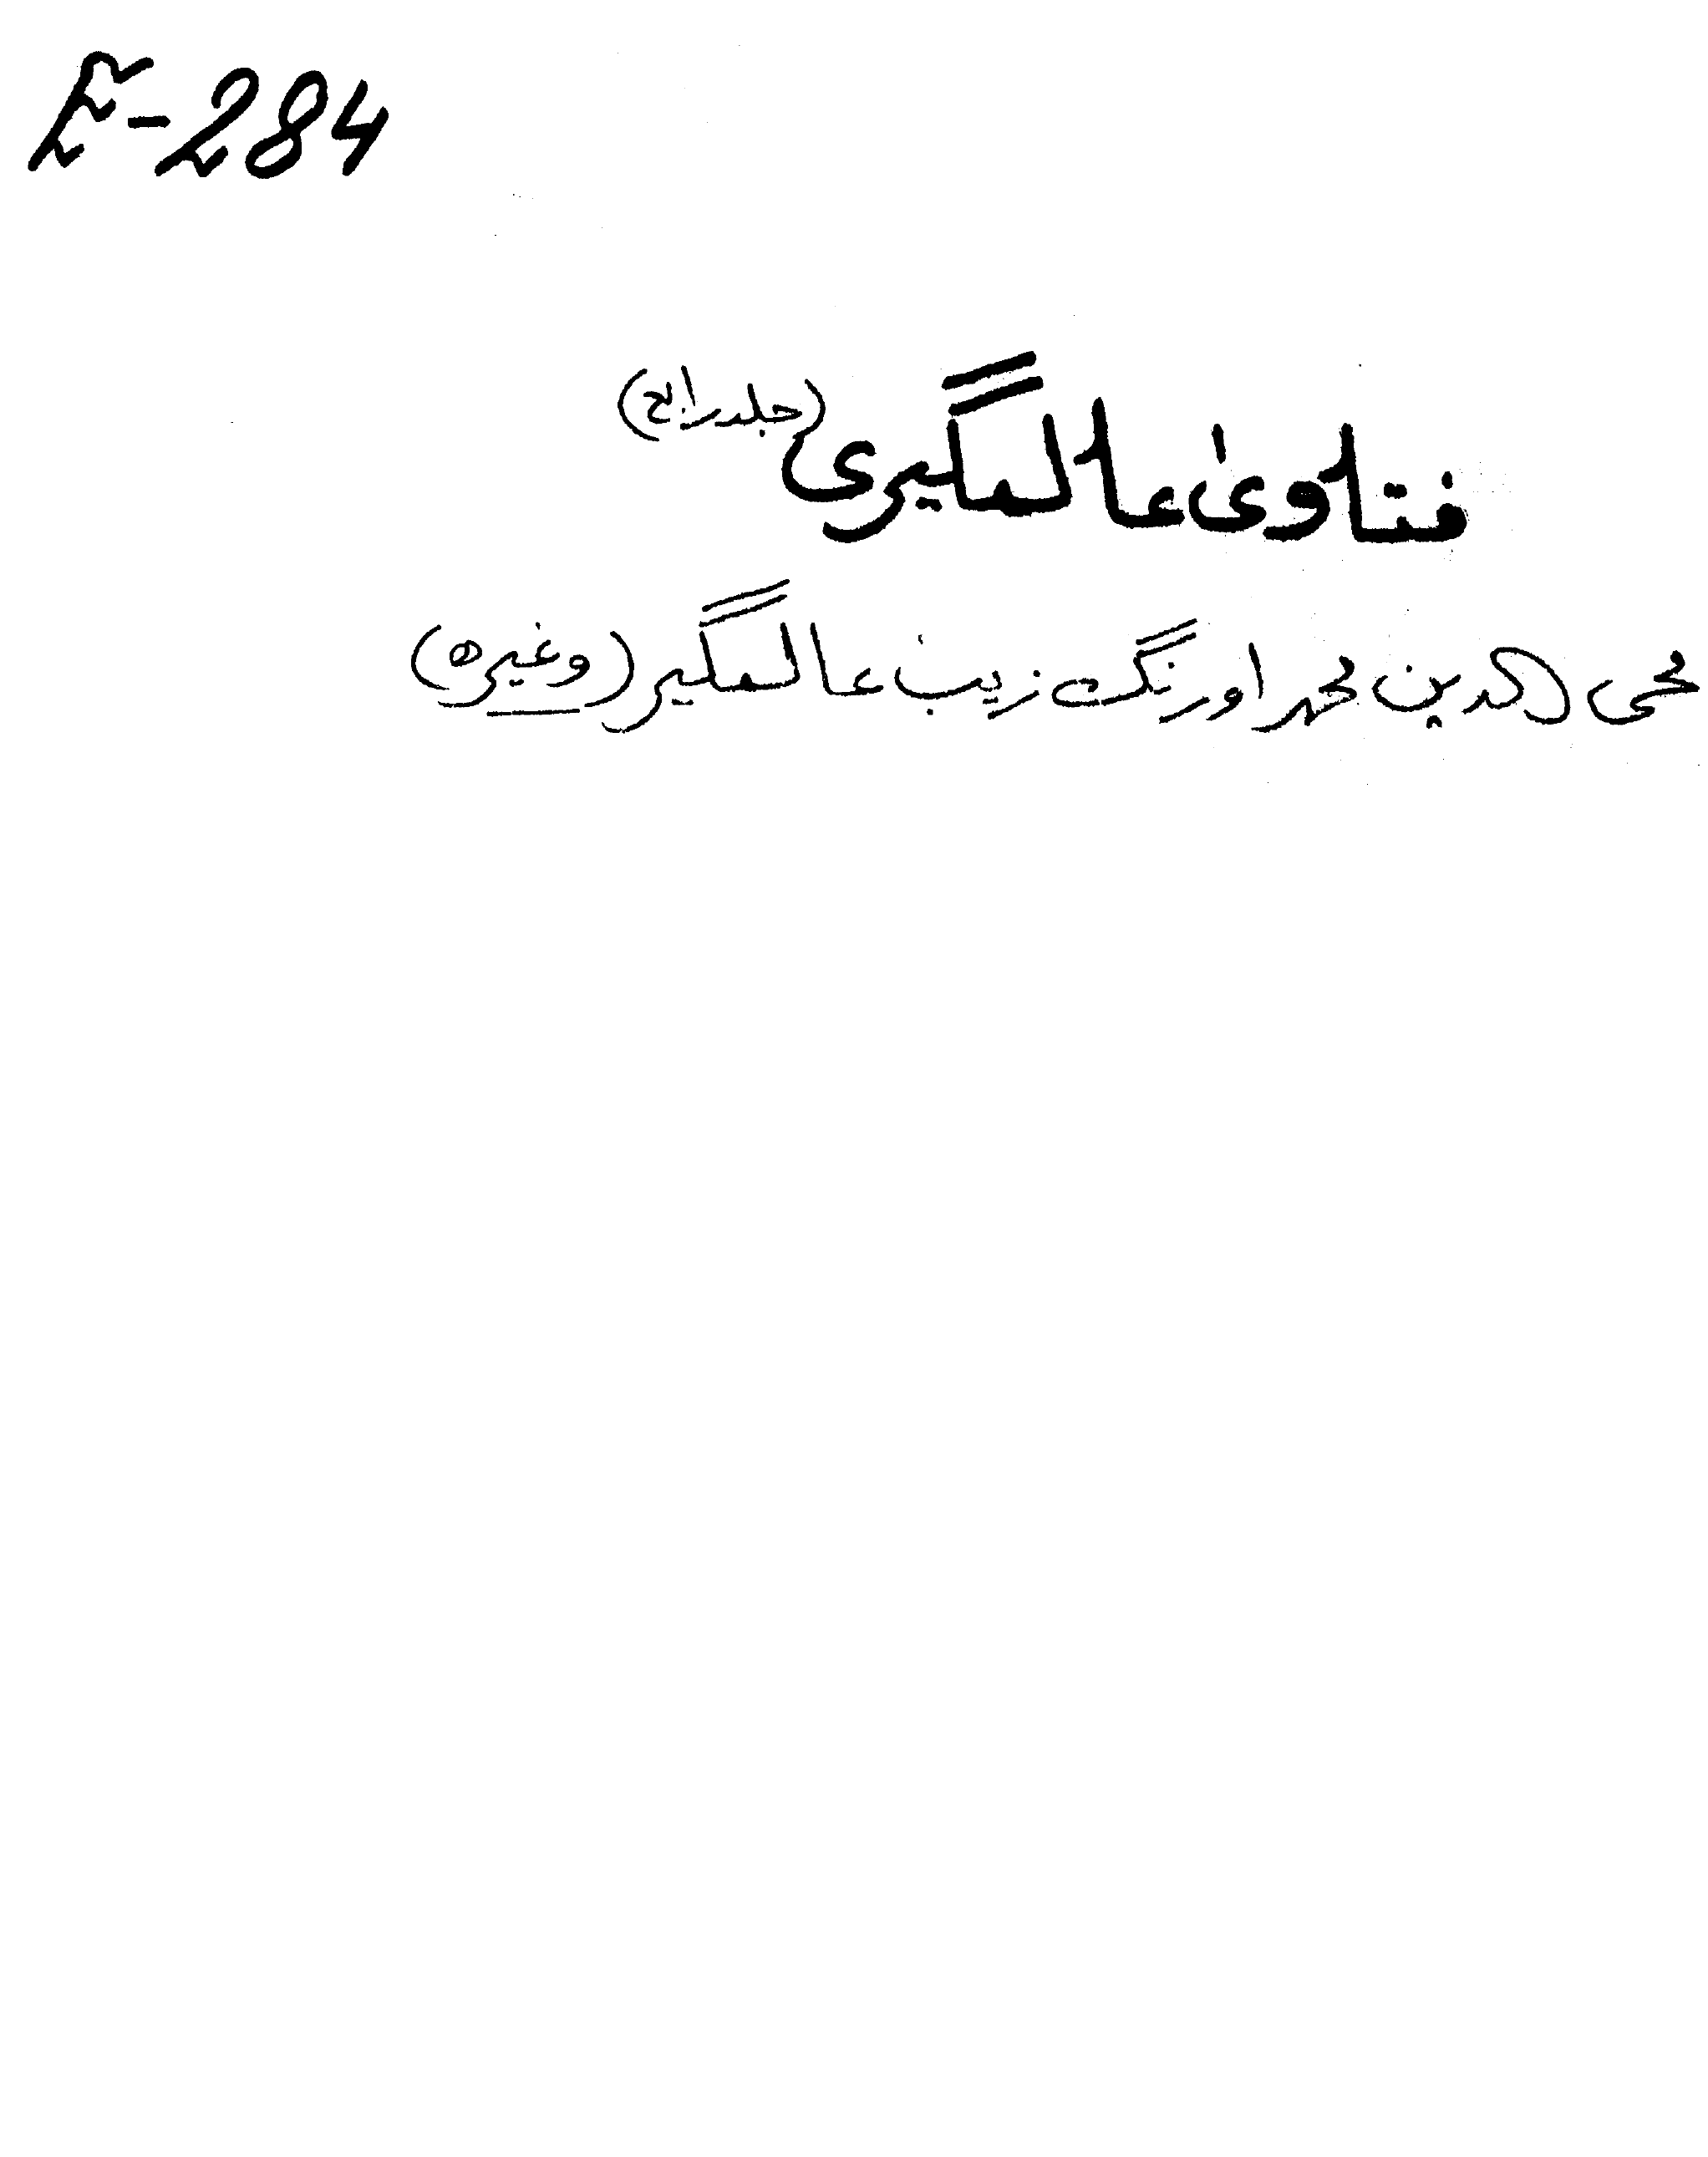 E-284
فتاویٰ عالمگیری (جلد رابع)
محی الدین محمد اورنگ زیب عالمگیر (وغیرہ)